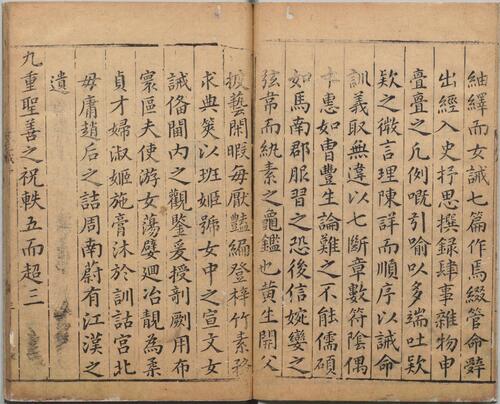 紬繹而女誡七篇作焉綴管命辭
出經入史抒思撰録肆事雜物申
亹亹之凡例嘅引喻以多端吐欵
欵之微言理陳詳而順序以誡命
訓義取無違以七斷章數符陰偶
惠如曹豐生論難之不能儒碩
如馬南郡服習之恐後信婉孌之
弦韋而紈素之龜鑑也黄生開父
披藝閑暇毎厭豔編登梓竹素務
求典筴以班姬號女中之宣文女
誡俻閫内之觀鑒爰授剞劂用布
寰區夫使游女蕩嬖廻冶靚為柔
貞才婦淑姬施膏沐於訓詁宮北
毋庸趙后之詰周南蔚有江漢之
遺
九重聖善之祝軼五而超三